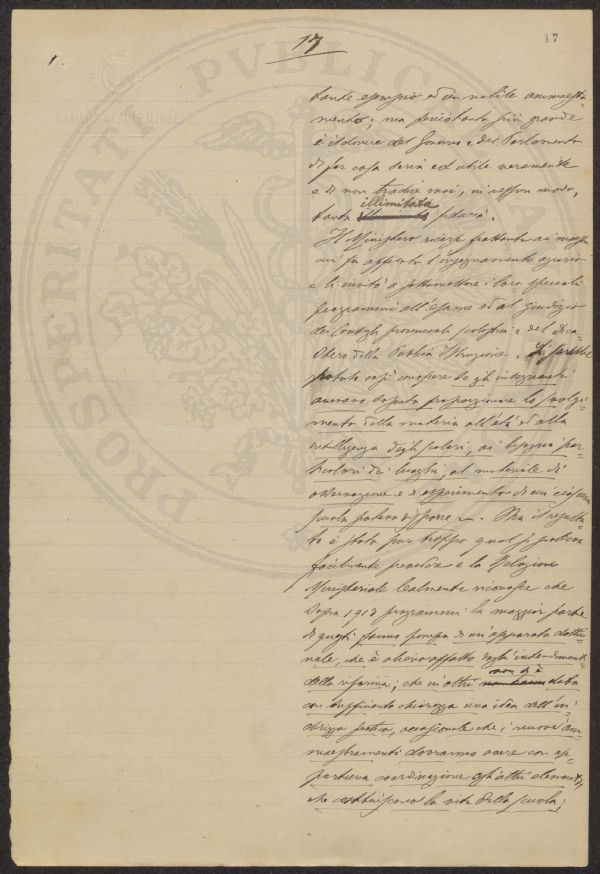 17
17
tante esempio ed un nobile ammaestra-
mento; ma perciò tanto più grande
è il dovere del Governo e del Parlamento
di far cosa seria ed utile veramente
e di non tradire mai, in nessun modo,
tanta illimitata fiducia.
Il Ministero scrisse frattanto ai maestri
cui fu affidato l'insegnamento agrario
e li invitò a sottomettere i loro speciali
programmi all'esame ed al giudizio
dei Consigli provinciali scolastici e del
della Pubblica Istruzione. Si sarebbe
potuto così conoscere se gli insegnanti
avevano saputo proporzionare lo svolgi-
mento della materia all'età ed alla
intelligenza degli scolari, ai bisogni par-
ticolari dei luoghi, al materiale di
osservazione e di esperimento di cui ciascuna
scuola poteva disporre. Ma il risulta-
to è stato pur troppo qual si poteva
facilmente prevedere e la Relazione
Ministeriale lealmente riconosce che
sopra 1917 programmi la maggior parte
di questi fanno pompa di un apparato dottri-
nale, che è alieno affatto dagli intendimenti
della riforma; che in altri non si è data
con sufficiente chiarezza una idea dell'in-
dirizzo pratico, occasionale che i nuovi am-
maestramenti dovranno avere con op-
portuna coordinazione agli altri elementi,
che costituiscono la vita della scuola;